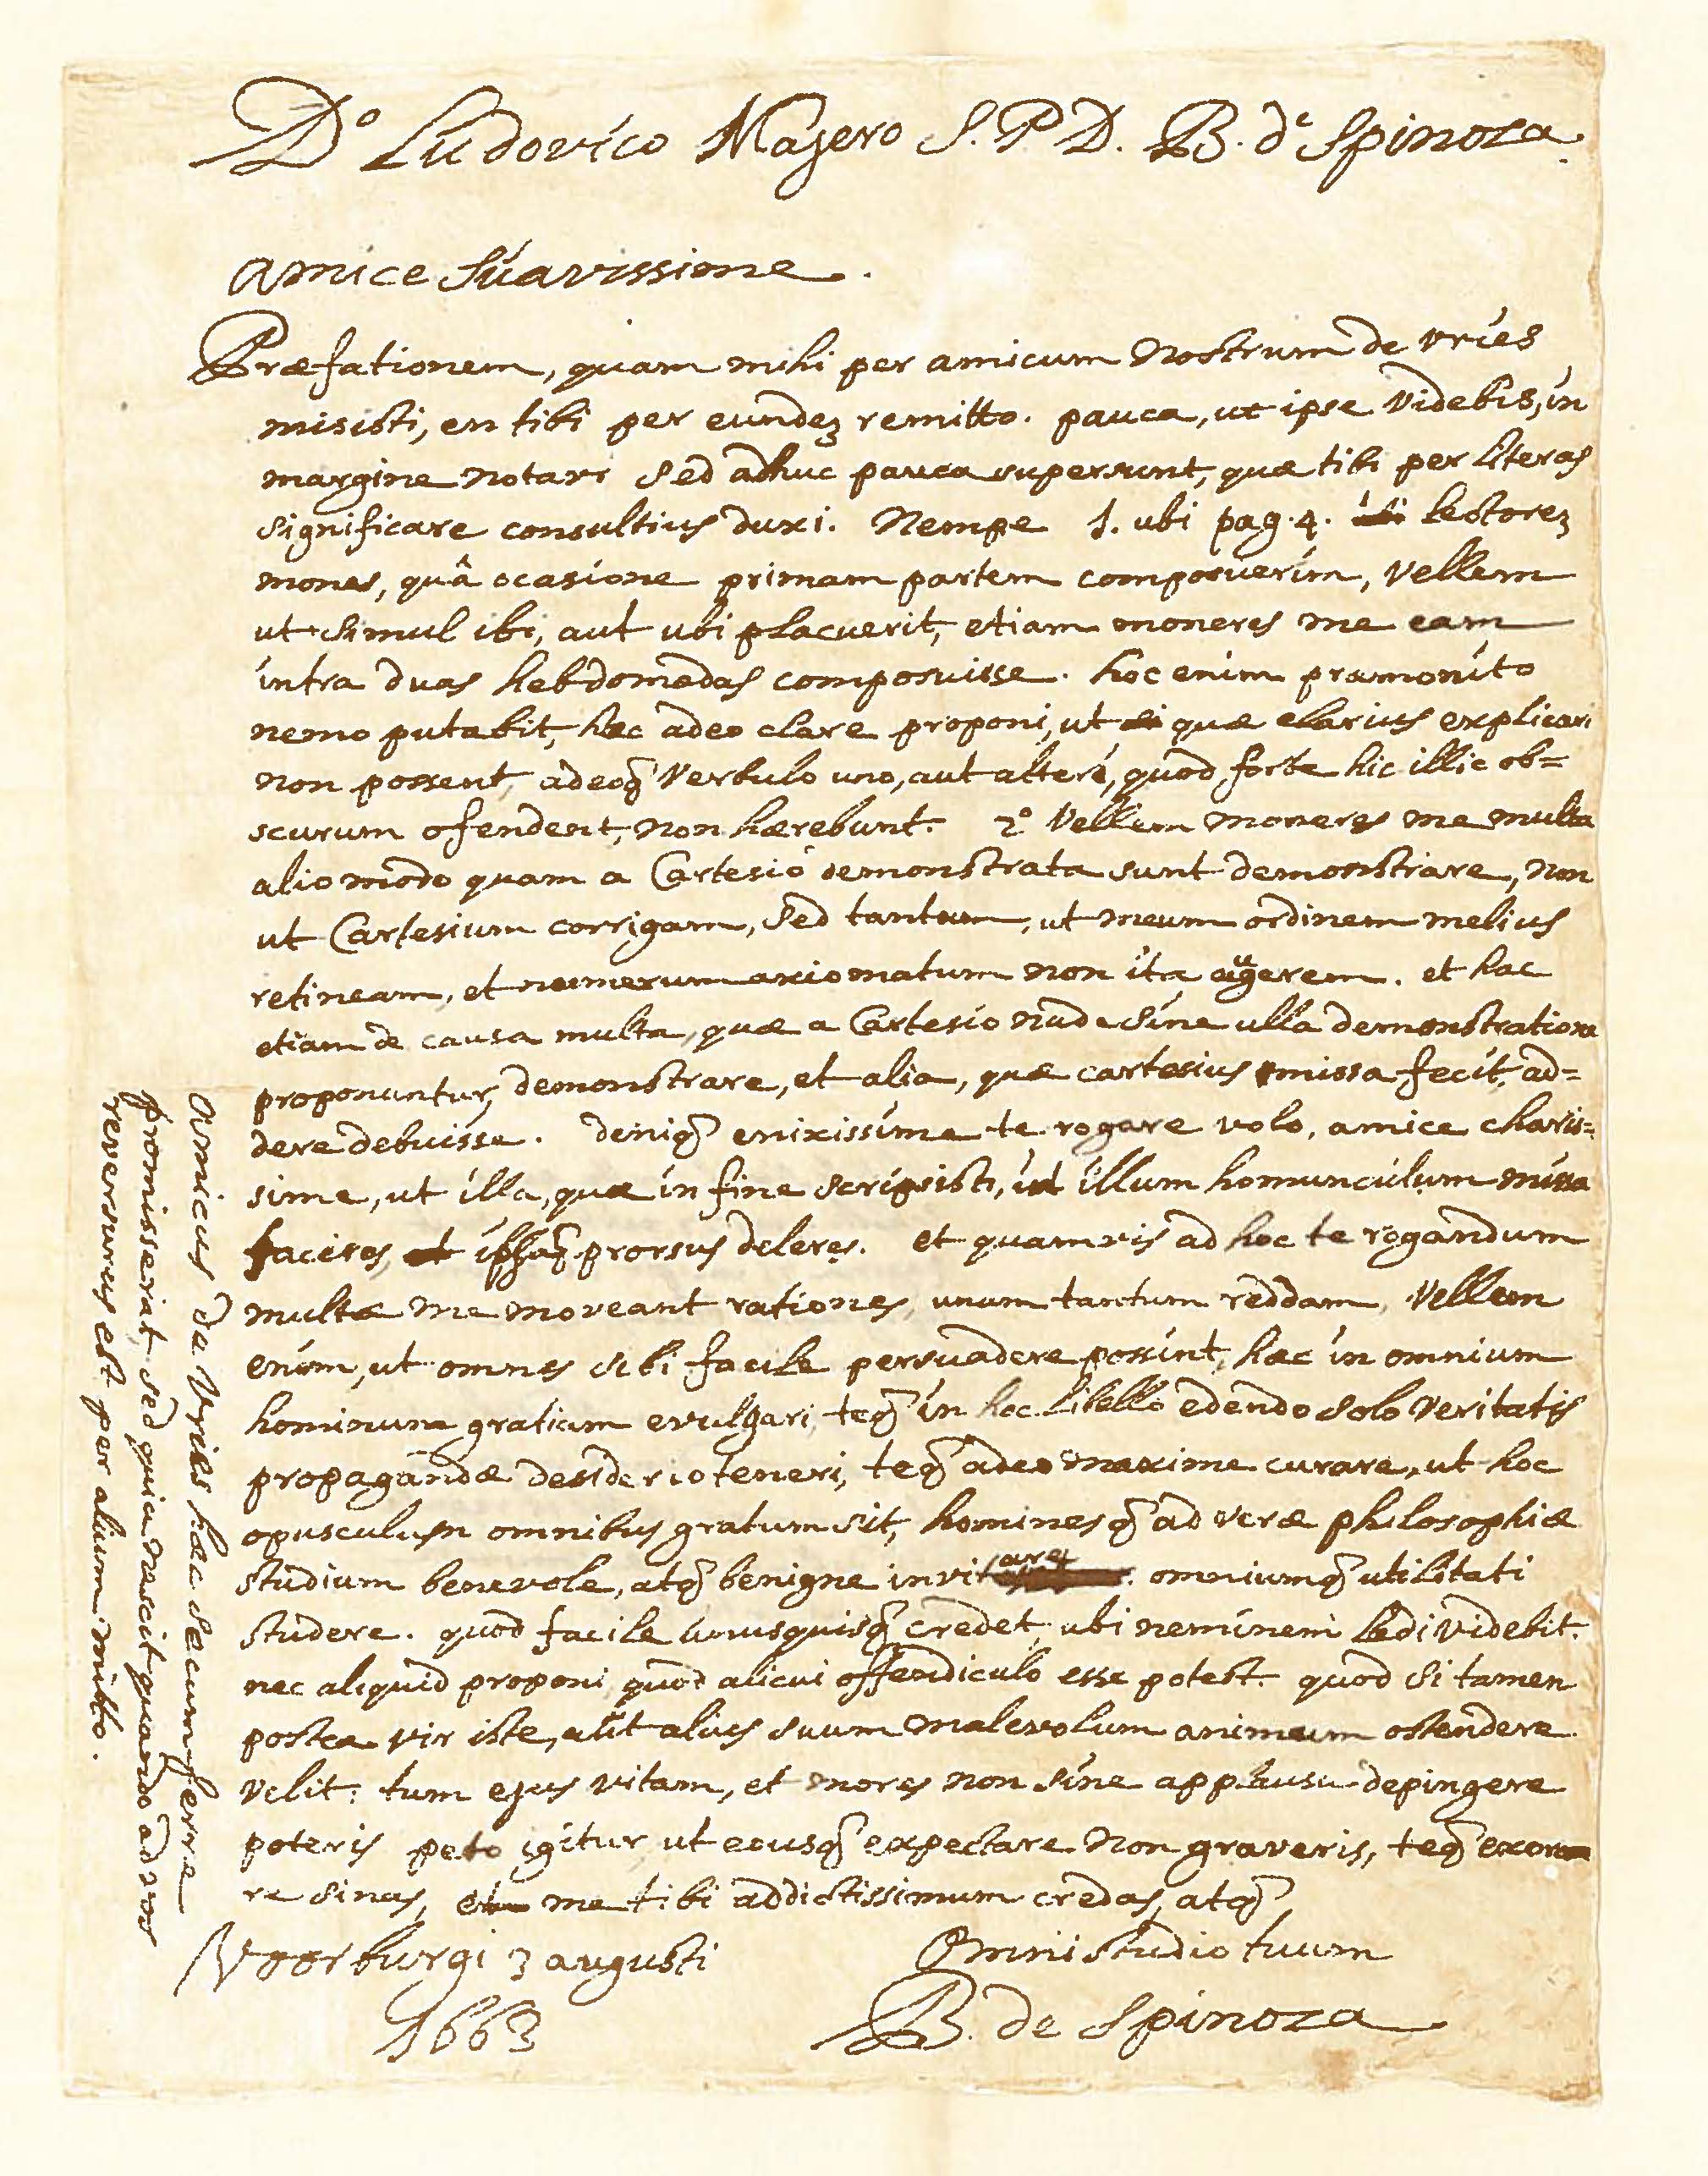 Do Ludovico Majero S. P. D. B. de Spinoza.
Amice Suavissime.
Præfationem, quam mihi per amicum Nostrum de Vries
misisti, en tibi per eundez remitto. pauca, ut ipse Videbis, in
margine notavi Sed adhuc pauca supersunt, quæ tibi per literas
significare consultius duxi. Nempe 1. ubi pag. 4. Lectorez
mones, quâ ocasione primam partem composuerim, Vellem
ut simul ibi, aut ubi placuerit, etiam moneres me eam
intra duas hebdomadas composuisse. hoc enim præmonito
nemo putabit, hæc adeo clare proponi, ut quæ clarius explicari
non possent, adeoq Verbulo uno, aut altero, quod forte hic illic ob=
scurum ofendent, non hærebunt. 2o Vellem moneres me multa
alio modo quam a Cartesio demonstrata sunt demonstrare, non
ut Cartesium corrigam, Sed tantum, ut meum ordinem melius
retineam, et numerum axiomatum non ita augerem. et hac
etiam de causa multa, quæ a Cartesio nude sine ulla demonstratione
proponuntur, demonstrare, et alia, quæ cartesius missa fecit, ad=
dere debuisse. deniq enixissime te rogare volo, amice charis=
sime, ut illa, quæ in fine scripsisti, in illum homunculum missa
faceres, et prorsus deleres. et quamvis ad hoc te rogandum
multæ me moveant rationes, unam tantum reddam, Vellem
enim, ut omnes sibi facile persuadere possint, hæc in omnium
hominum gratiam evulgari, teq in hoc libello edendo solo Veritatis
propagandæ desiderio teneri, teq adeo maxime curare, ut hoc
opusculum omnibus gratum sit, hominesq ad veræ philosophiæ
studium benevole, atq benigne invitare, omniumq utilitati
studere. quod facile unusquisq credet, ubi neminem lædi videbit.
nec aliquid proponi, quod alicui offendiculo esse potest. quod si tamen
postea vir iste, aut alius suum malevolum animum ostendere
velit: tum ejus vitam, et mores non sine applausu depingere
poteris peto igitur ut eousq expectare non graveris, teq exora
re sinas, me tibi addictissimum credas, atq
Omni studio tuum
Voorburgi 3 augusti
1663
B. de Spinoza
Amicus de Vries hæc secum ferre
promisserat, sed quia nescit quando ad vos
reversurus est per alium mitto.